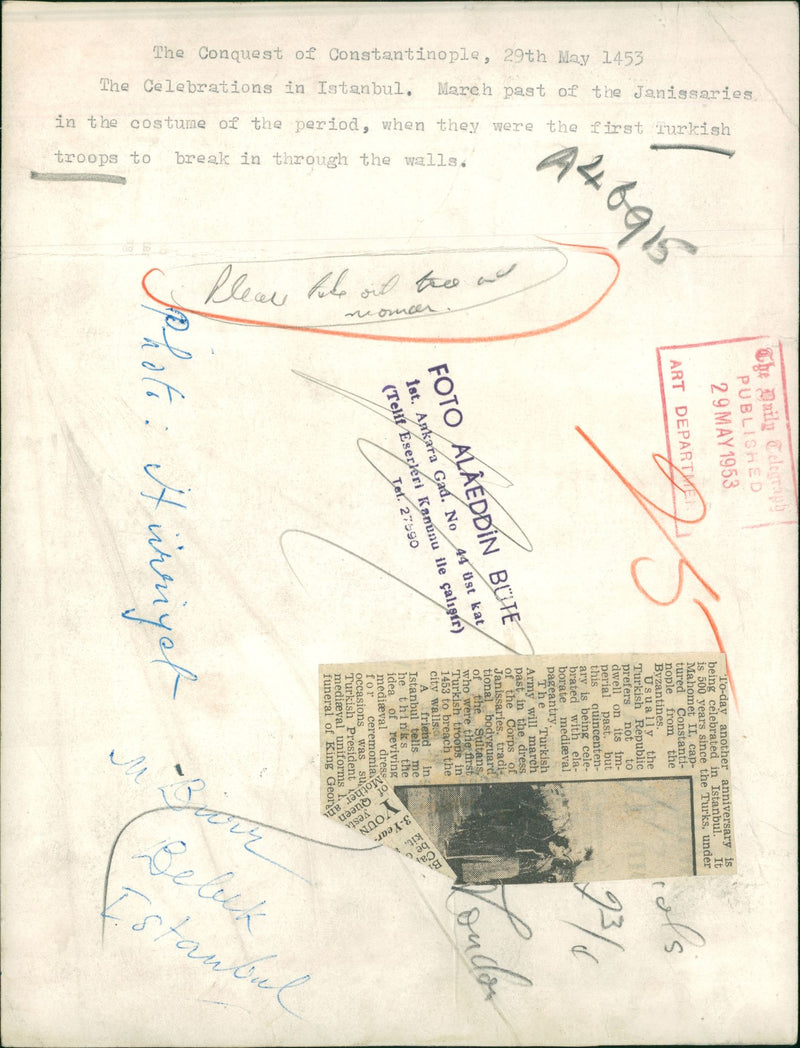 The Conquest of Constantinople, 29th May 1453
The Celebrations in Istanbul. March past of the Janissaries
in the costume of the period, when they were the first Turkish
troops to break in through the walls.
A46915
Please take out tree and
woman.
Photo: Hürriyet
FOTO ALÂEDDİN BÜTE
Ist. Ankara Cad. No 44 üst kat
(Telif Eserleri Kanunu ile çalışır)
Tel. 27590
The Daily Telegraph
PUBLISHED
29 MAY 1953
ART DEPARTMEN
To-day another anniversary is
being celebrated in Istanbul. It
is 500 years since the Turks, under
Mahomet II, cap-
tured Constanti-
nople from the
Byzantines.
Usually the
Turkish Republic
prefers not to
dwell on its im-
perial past, but
this quincenten-
ary is being cele-
brated with ela-
borate mediæval
pageantry.
The Turkish
Army will march
past in the dress
of the Corps of
Janissaries, tradi-
tional bodyguard
of the Sultans,
who were the first
Turkish troops in
1453 to breach the
city walls.
A friend in
Istanbul tells me
he thinks the
idea of reviving
mediæval dress
for ceremonial
occasions was su
Turkish President
mediæval uniforms
funeral of King Georg
of Mother
Queen
yest
YOUN
3-Year
kit.
be
M Burr
Bebek
Istanbul
London
93/0